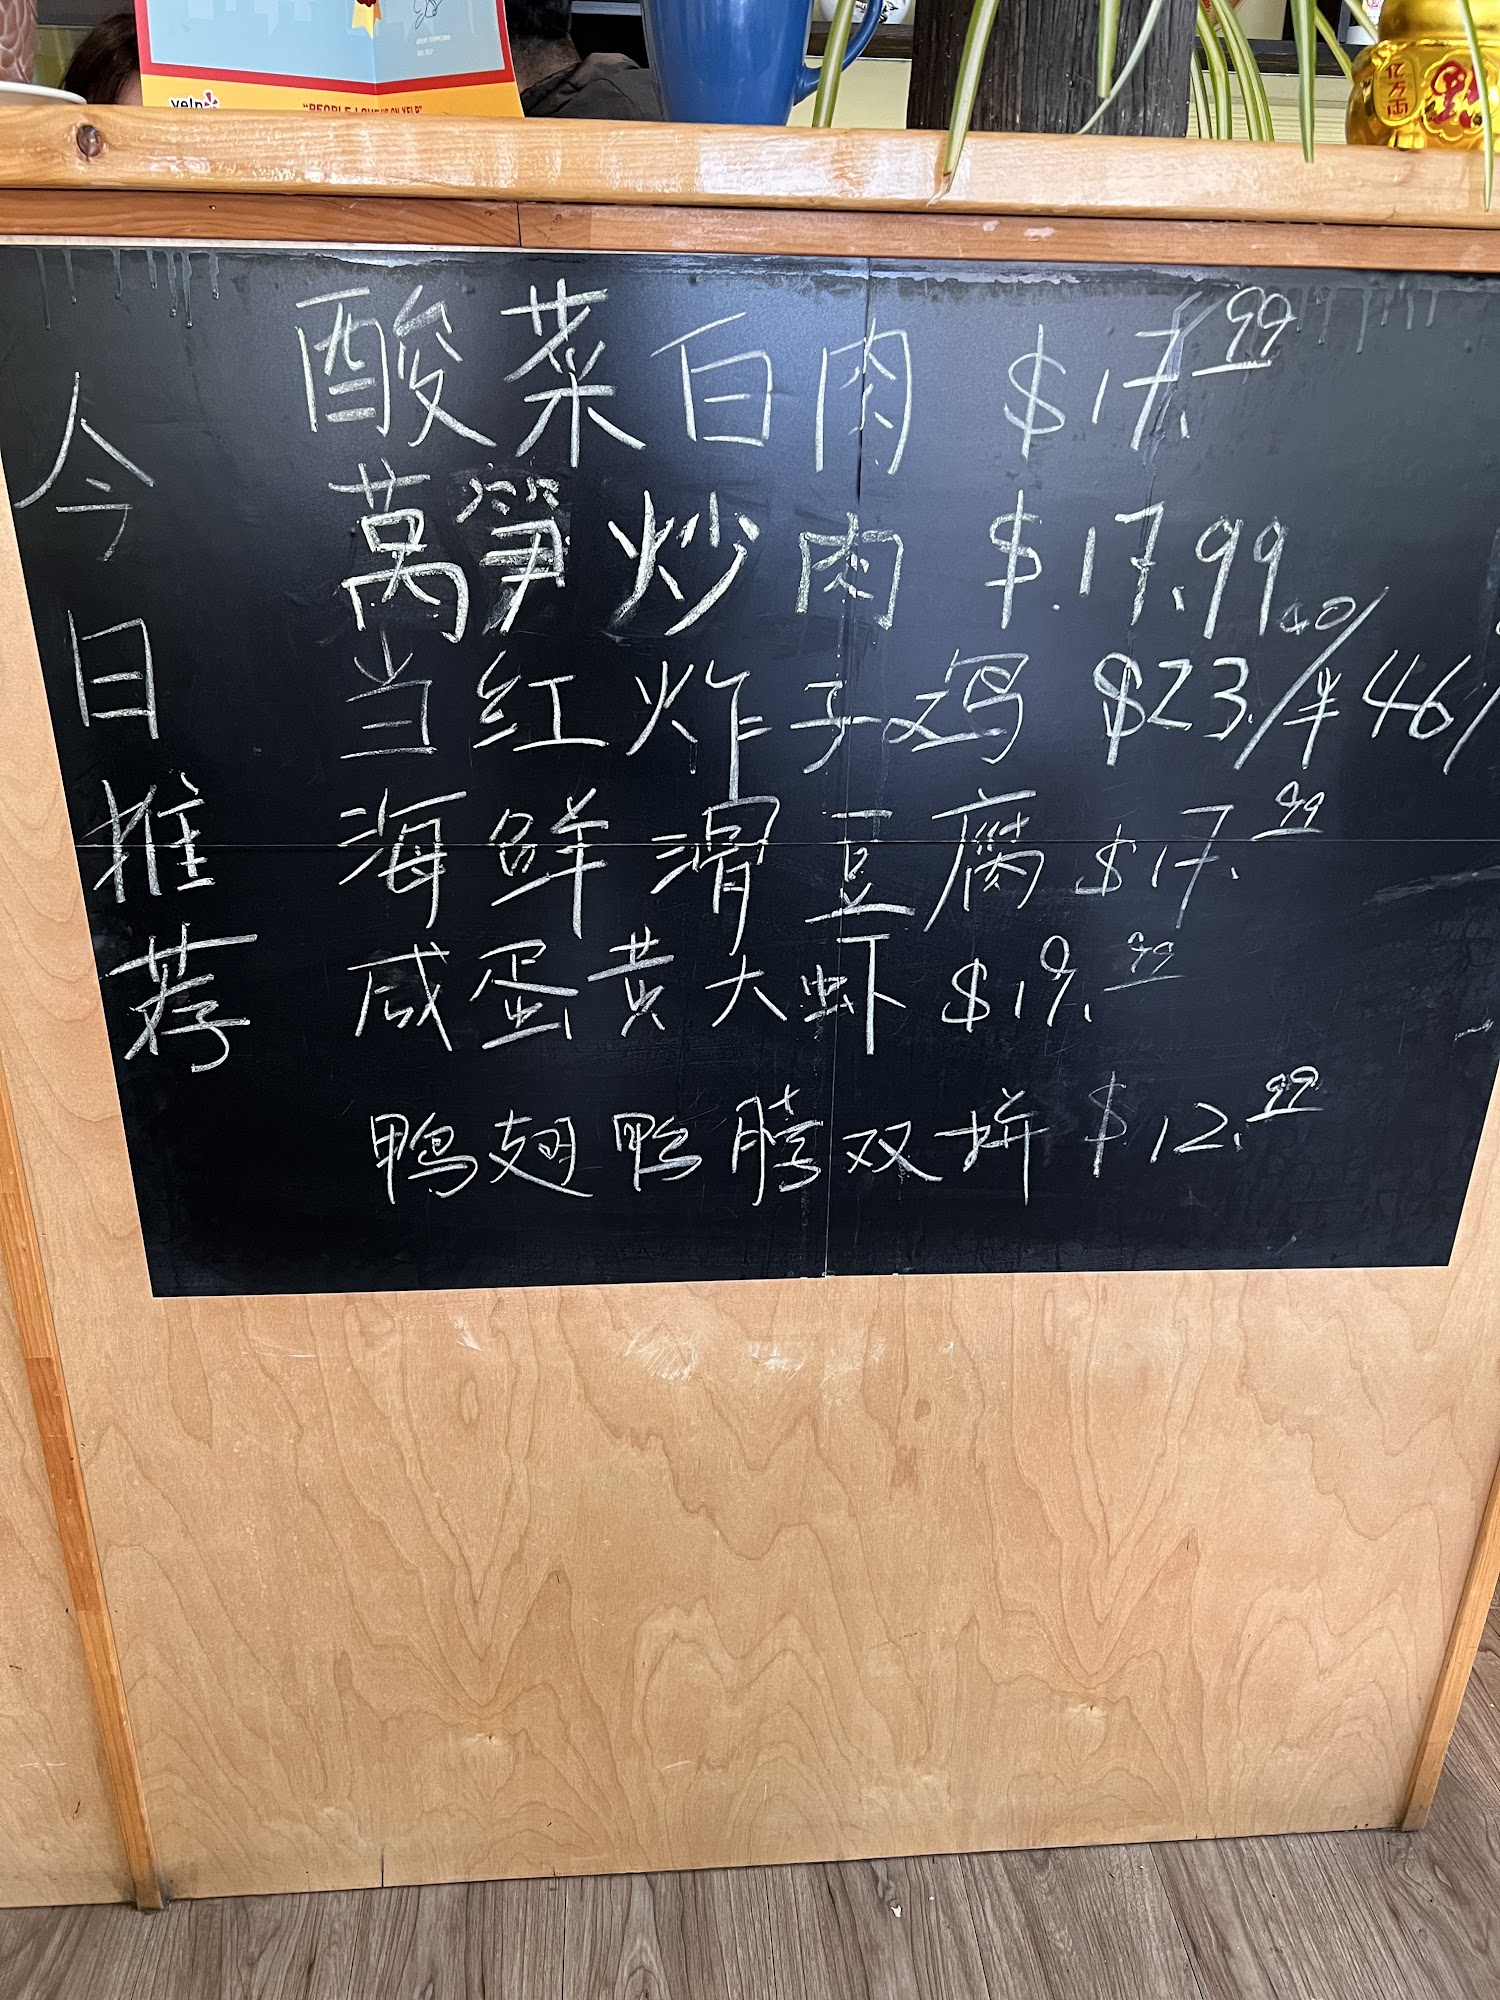 yelp
"PEOPLE LOVE US ON YELP"
亿万両
今日推荐
酸菜白肉 $17.99
莴笋炒肉 $.17.99
当红炸子鸡 $23.00/半 46/
海鲜滑豆腐 $17.99
咸蛋黄大虾 $19.99
鸭翅鸭膀双拼 $12.99